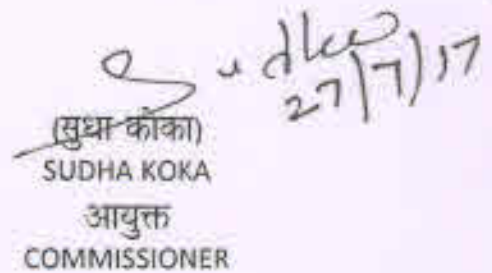 Sudha
27/7/17
(सुधा कोका)
SUDHA KOKA
आयुक्त
COMMISSIONER